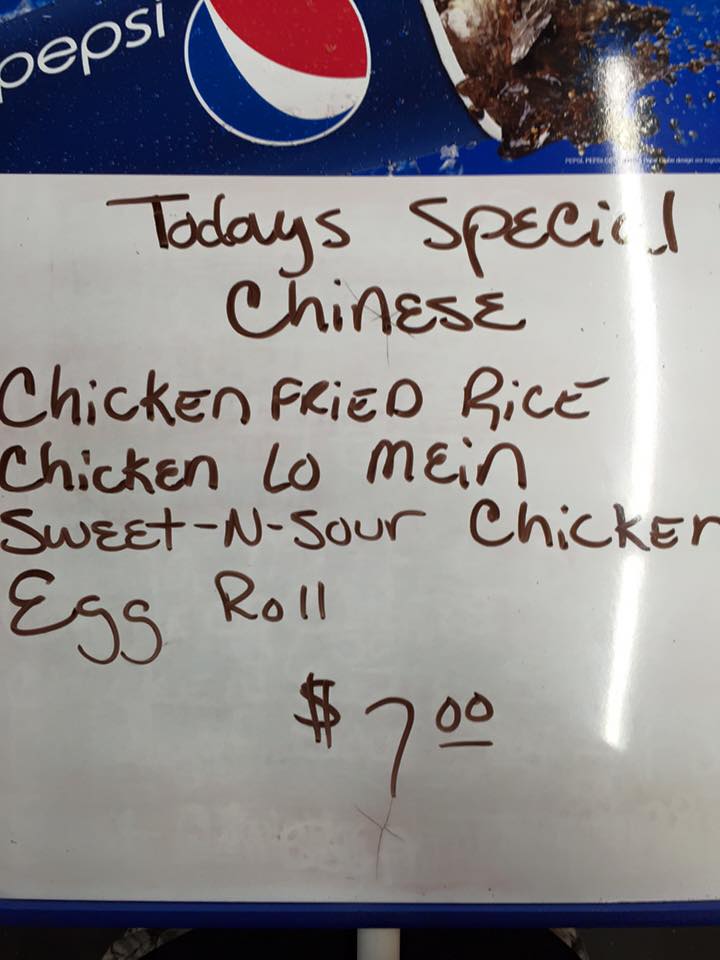 pepsi
Todays Special
Chinese
Chicken Fried Rice
Chicken Lo Mein
Sweet-N-Sour Chicken
Egg Roll
$7.00